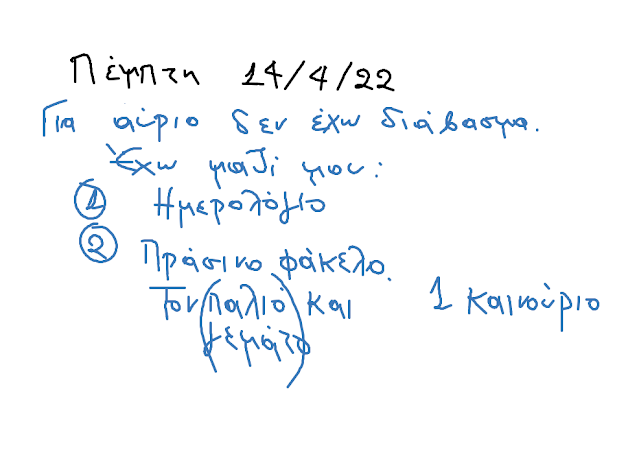 Πέμπτη 14/4/22
Για αύριο δεν έχω διάβασμα.
Έχω μαζί μου:
① Ημερολόγιο
② Πράσινο φάκελο.
Τον (παλιό και 1 καινούριο
γεμάτο)